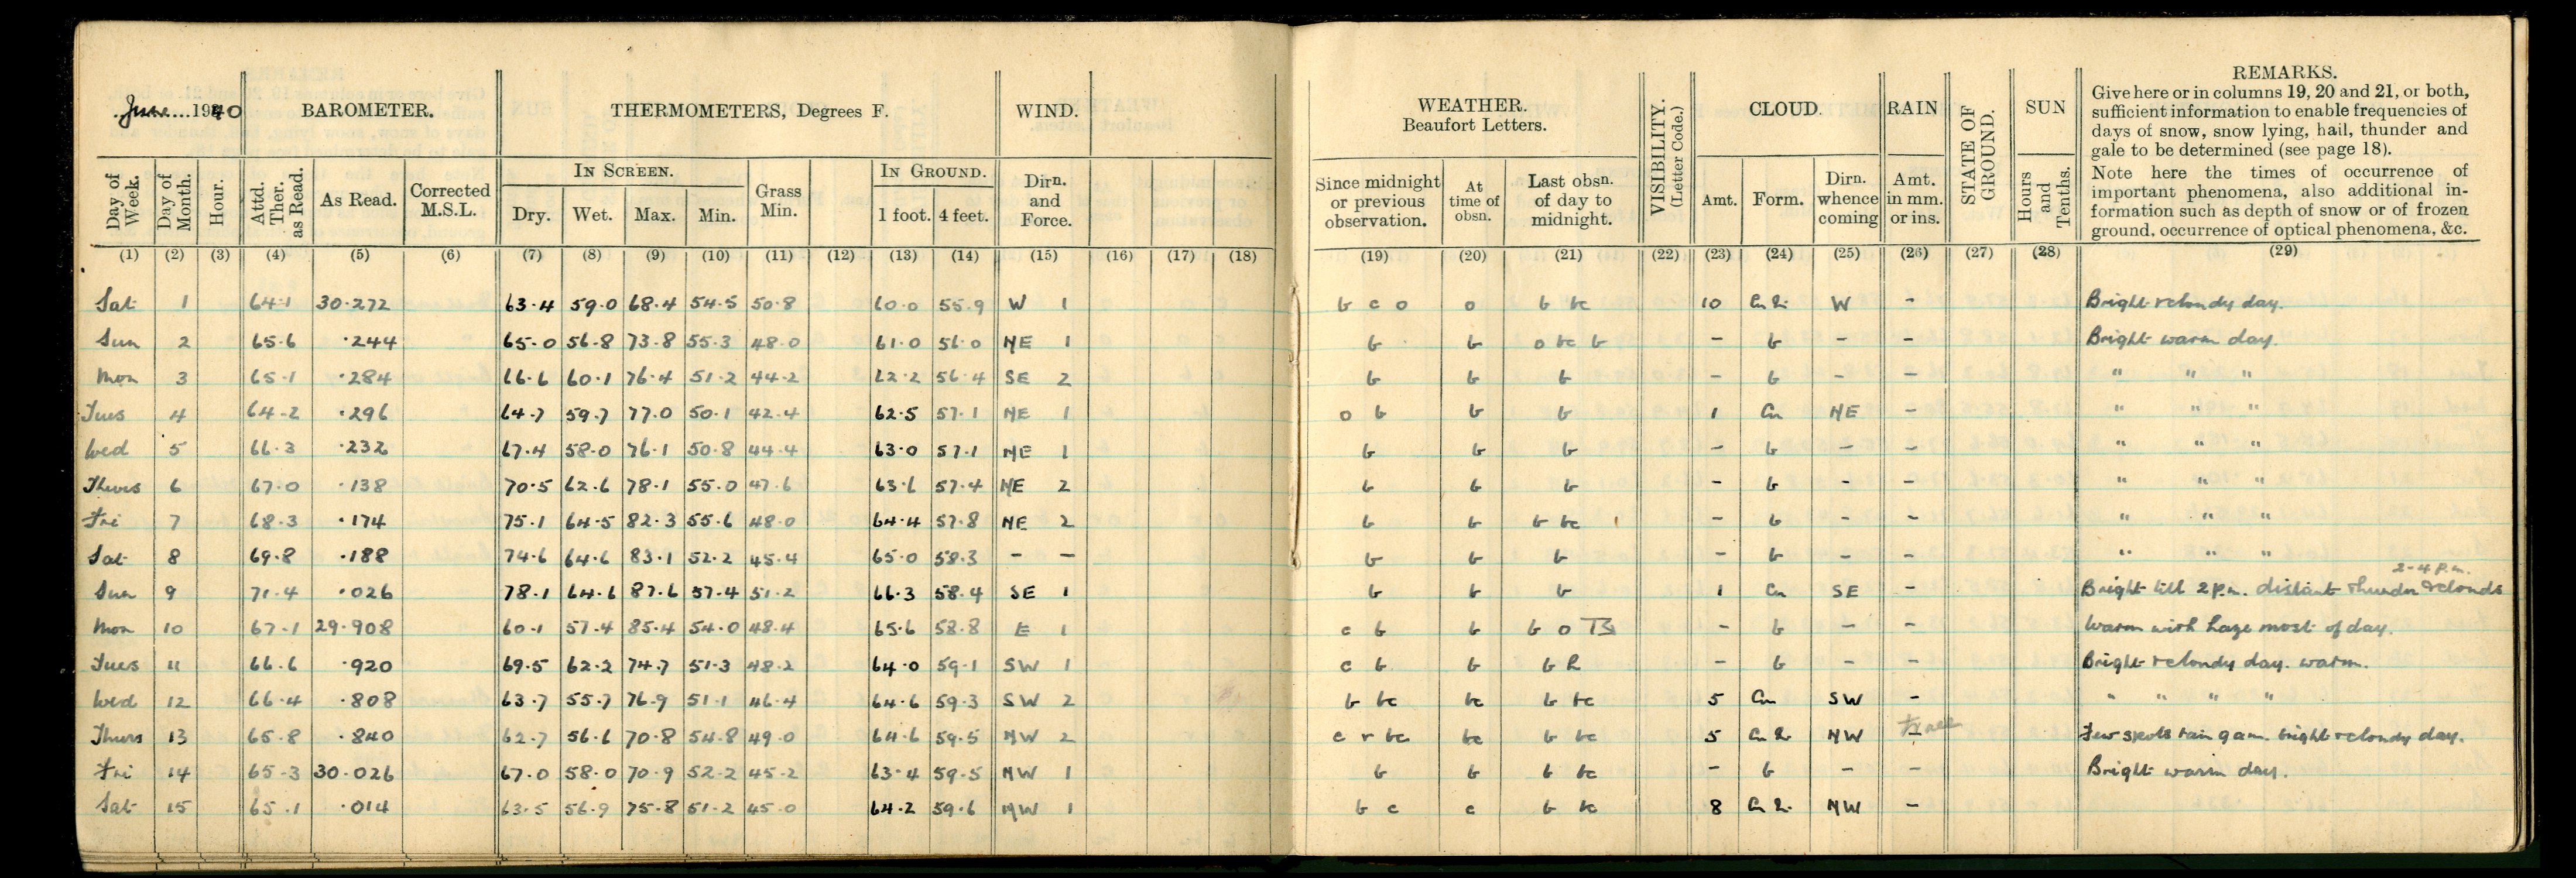 June 1940 BAROMETER. THERMOMETERS, Degrees F. WIND.
Day of Week. Day of Month. Hour. Attd. Ther. as Read. As Read. Corrected M.S.L. IN SCREEN. Dry. Wet. Max. Min. Grass Min. IN GROUND. 1 foot. 4 feet. Dirn. and Force.
(1) (2) (3) (4) (5) (6) (7) (8) (9) (10) (11) (12) (13) (14) (15) (16) (17) (18)
Sat 1 64.1 30.272 63.4 59.0 68.4 54.5 50.8 60.0 55.9 W 1
Sun 2 65.6 .244 65.0 56.8 73.8 55.3 48.0 61.0 56.0 NE 1
Mon 3 65.1 .284 66.6 60.1 76.4 51.2 44.2 62.2 56.4 SE 2
Tues 4 64.2 .296 64.7 59.7 77.0 50.1 42.4 62.5 57.1 NE 1
Wed 5 66.3 .232 67.4 58.0 76.1 50.8 44.4 63.0 57.1 NE 1
Thurs 6 67.0 .138 70.5 62.6 78.1 55.0 47.6 63.6 57.4 NE 2
Fri 7 68.3 .174 75.1 64.5 82.3 55.6 48.0 64.4 57.8 NE 2
Sat 8 69.8 .188 74.6 64.6 83.1 52.2 45.4 65.0 58.3 - -
Sun 9 71.4 .026 78.1 64.6 87.6 57.4 51.2 66.3 58.4 SE 1
Mon 10 67.1 29.908 60.1 57.4 85.4 54.0 48.4 65.6 58.8 E 1
Tues 11 66.6 .920 69.5 62.2 74.7 51.3 48.2 64.0 59.1 SW 1
Wed 12 66.4 .808 63.7 55.7 76.9 51.1 46.4 64.6 59.3 SW 2
Thurs 13 65.8 .840 62.7 56.6 70.8 54.8 49.0 64.6 59.5 NW 2
Fri 14 65.3 30.026 67.0 58.0 70.9 52.2 45.2 63.4 59.5 NW 1
Sat 15 65.1 .014 63.5 56.9 75.8 51.2 45.0 64.2 59.6 NW 1
WEATHER. Beaufort Letters. VISIBILITY. (Letter Code.) CLOUD. RAIN STATE OF GROUND. SUN
REMARKS.
Give here or in columns 19, 20 and 21, or both,
sufficient information to enable frequencies of
days of snow, snow lying, hail, thunder and
gale to be determined (see page 18).
Note here the times of occurrence of
important phenomena, also additional in-
formation such as depth of snow or of frozen
ground, occurrence of optical phenomena, &c.
Since midnight or previous observation. At time of obsn. Last obsn. of day to midnight. Amt. Form. Dirn. whence coming Amt. in mm. or ins. Hours and Tenths.
(19) (20) (21) (22) (23) (24) (25) (26) (27) (28) (29)
b c o o b bc 10 W - Bright & cloudy day.
b b o bc b - b - - Bright warm day.
b b b - b - - " " "
o b b b 1 Cu NE - " " "
b b b - b - - " " "
b b b - b - - " " "
b b b bc - b - - " " "
b b b - b - - " " "
2-4 p.m.
b b b 1 Cu SE - Bright till 2 p.m. distant thunder & clouds
c b b b o - b - - Warm with haze most of day.
c b b b - b - - Bright & cloudy day. warm.
b bc bc b bc 5 Cu SW - " " " "
c r bc bc b bc 5 NW Trace Few spots rain 9 am. bright & cloudy day.
b b b bc - b - - Bright warm day.
b c c b bc 8 NW -